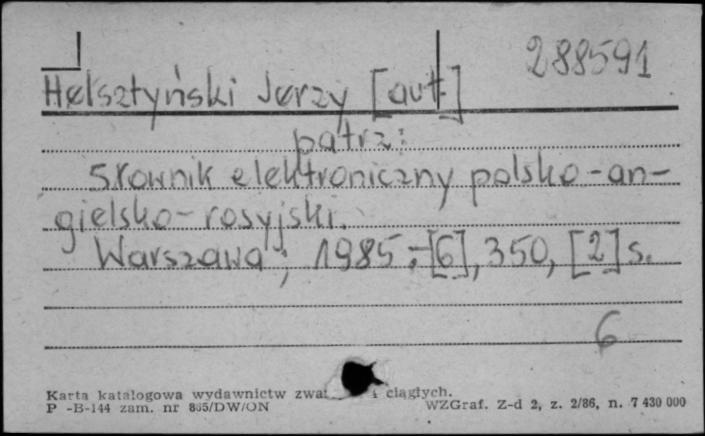 288591
Helsztyński Jerzy [aut.]
patrz:
Słownik elektroniczny polsko-an-
gielsko-rosyjski.
Warszawa; 1985.-[6], 350, [2] s.
6
Karta katalogowa wydawnictw i ciągłych.
P -B-144 zam. nr 865/DW/ON WZGraf. Z-d 2, z. 2/86, n. 7 430 000